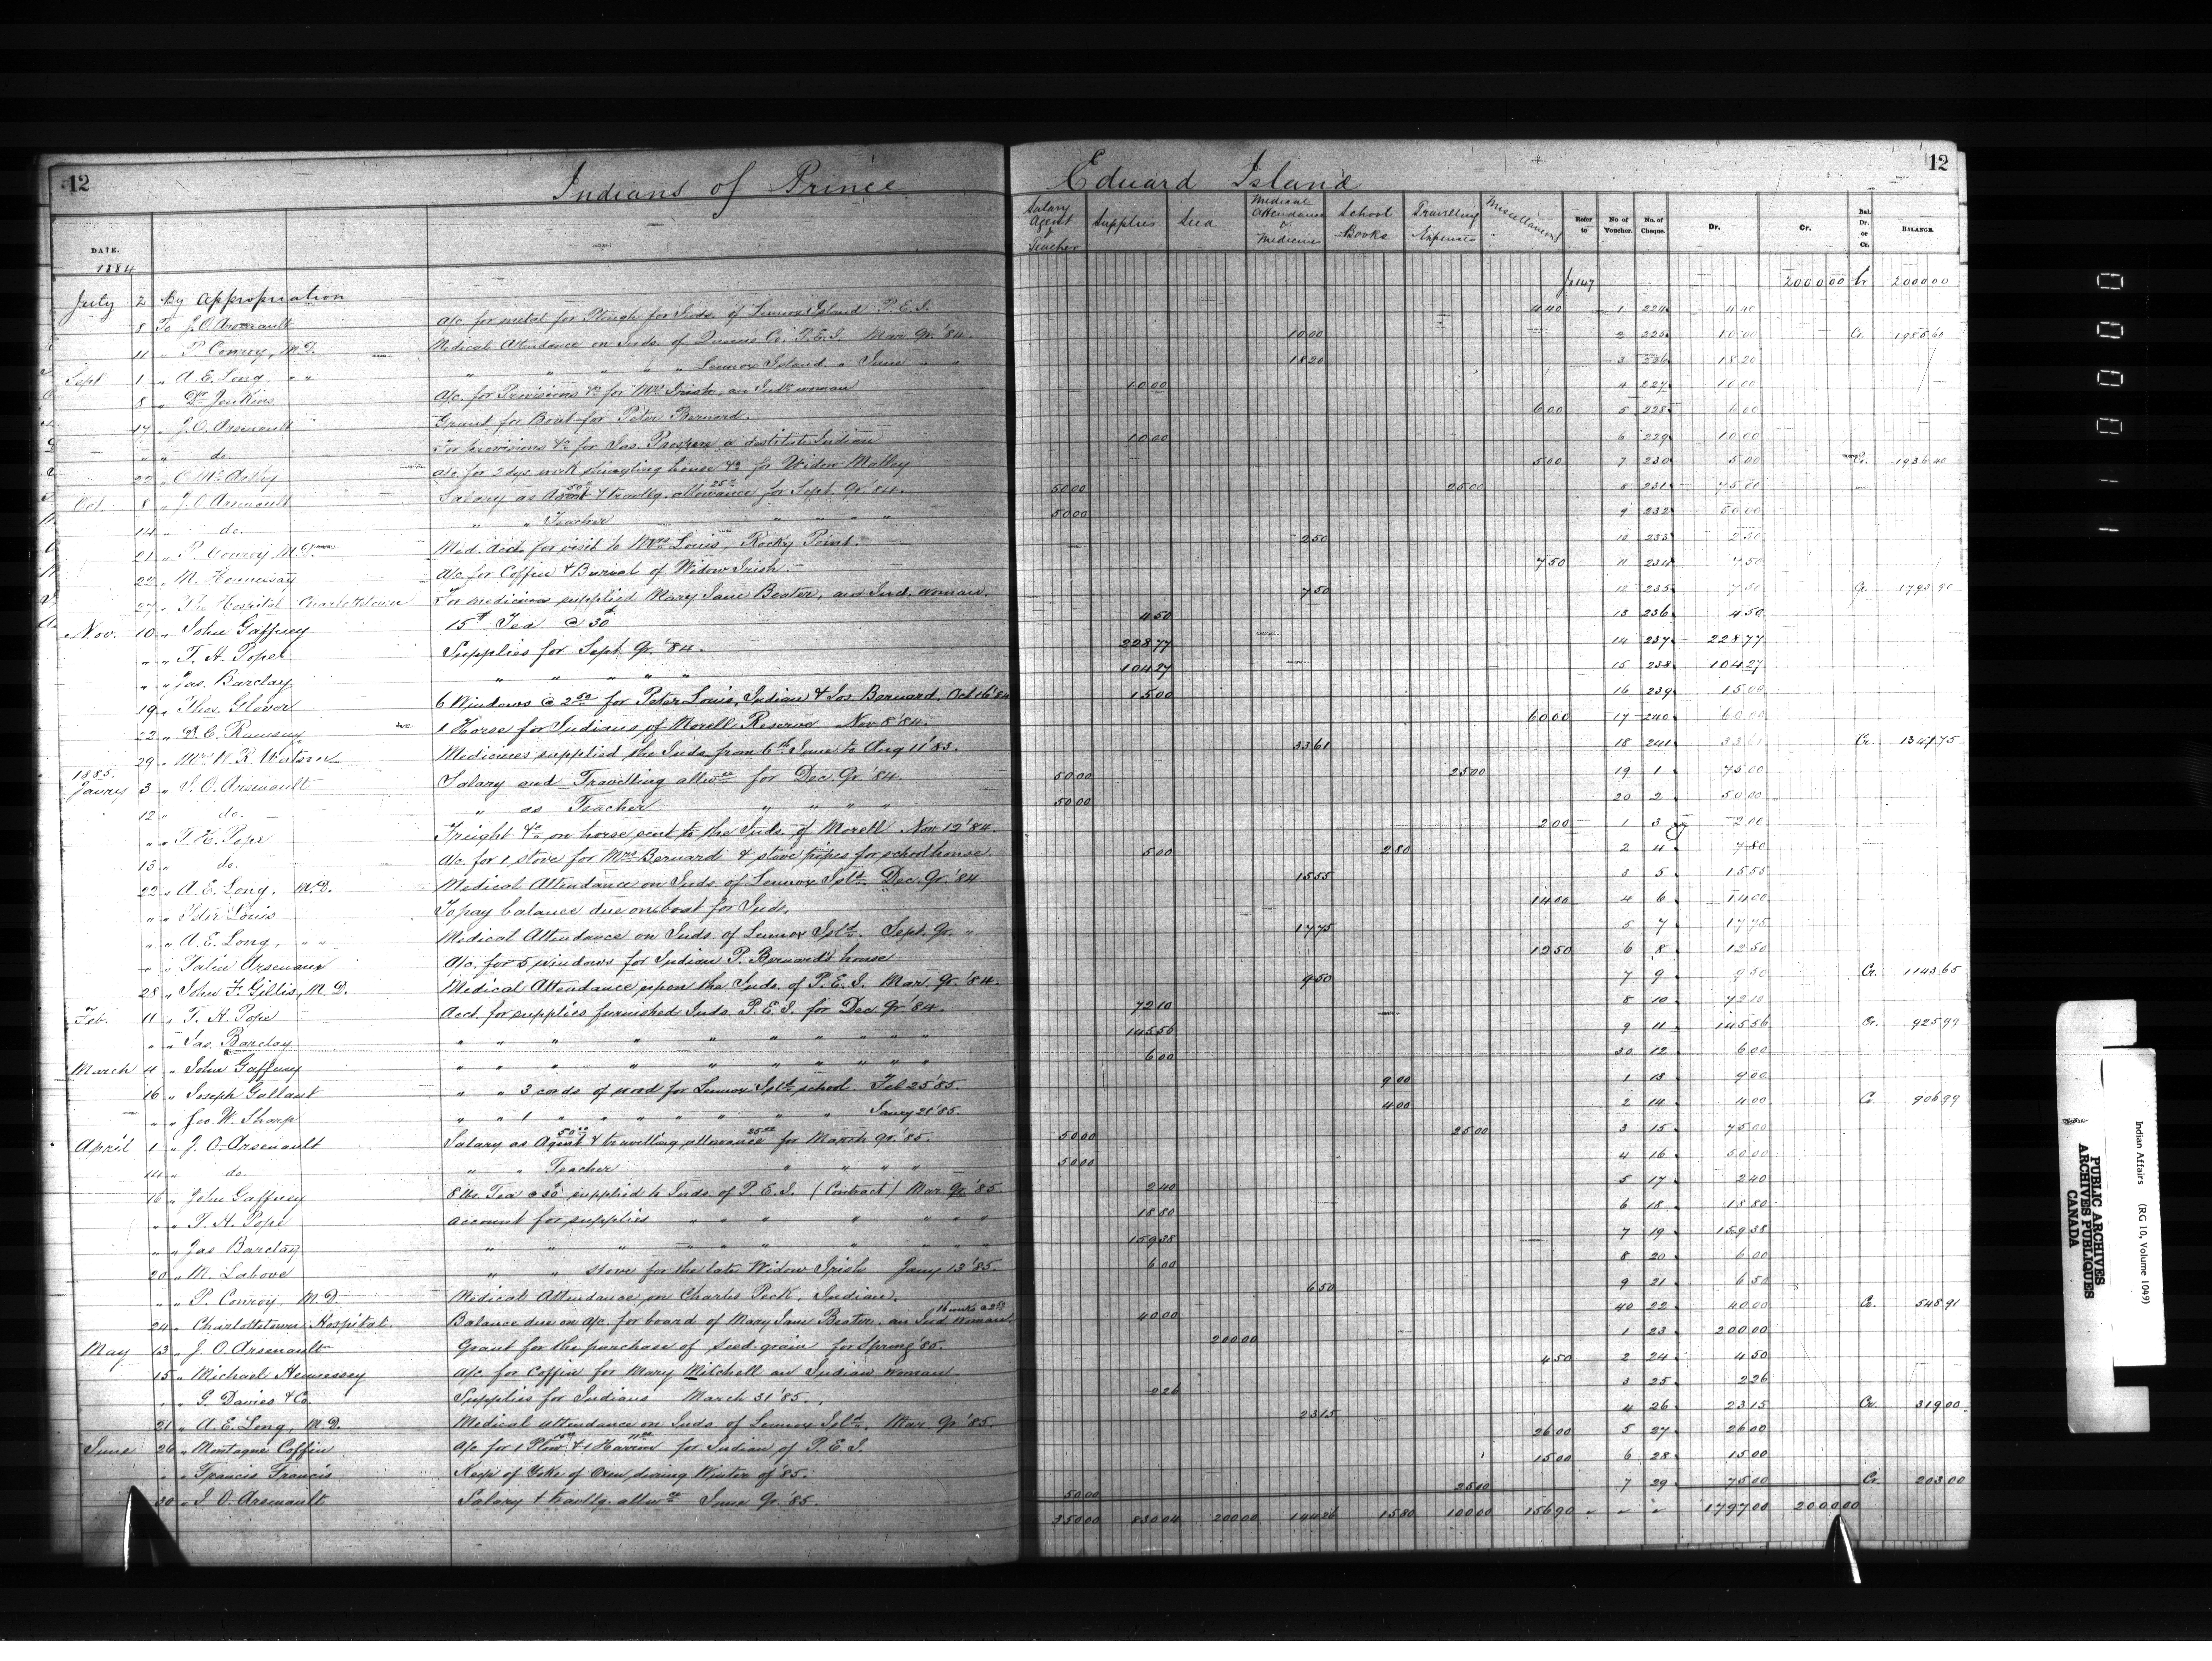 12 Indians of Prince Eduard Island 12
DATE. Salary Agent & Teacher Supplies Seed Medical Attendance & Medicines School Books Travelling Expenses Miscellaneous Refer to No. of Voucher. No. of Cheque. Dr. Cr. Bal. Dr. or Cr. BALANCE.
1884
July 2 By Appropriation 2000 00 Cr 2000 00
8 To J. O. Arsenault a/c for metal for Plough for Inds. of Lennox Island P.E.I. 4 40 1 224 4 40
11 " P. Conroy, M.D. Medical Attendance on Inds. of Queens Co. P.E.I. Mar. Qr. '84. 10 00 2 225 10 00 Cr. 1985 60
Sept 1 " A. E. Long " " " " " " " Lennox Island " June " " 18 20 3 226 18 20
8 " Dr Jenkins a/c for Provisions &c for Mrs Irish, an Indn woman 10 00 4 227 10 00
17 " J. O. Arsenault Grant for Boat for Peter Bernard. 6 00 5 228 6 00
" " do. For provisions &c for Jas. Prospere a destitute Indian 10 00 6 229 10 00
22 " C. McArthy a/c for 2 dys. work shingling house &c for Widow Malley 5 00 7 230 5 00 Cr. 1936 40
Oct. 8 " J. O. Arsenault Salary as Agent 50.00 & travllg. allowance 25.00 for Sept. Qr. '84. 50 00 25 00 8 231 75 00
14 " do. " " Teacher " " " " 50 00 9 232 50 00
21 " P. Conroy, M.D. Med. Acct. for visit to Mrs Louis, Rocky Point. 2 50 10 233 2 50
22 " M. Hennessay a/c for Coffin & Burial of Widow Irish. 7 50 11 234 7 50
27 " The Hospital Charlottetown For medicines supplied Mary Jane Beater, an Ind. woman. 7 50 12 235 7 50 Cr. 1793 90
Nov. 10 " John Gaffney 15 # Tea @ 30 ¢ 4 50 13 236 4 50
" " T. H. Pope Supplies for Sept. Qr. '84. 228 77 14 237 228 77
" " Jas. Barclay " " " " " 104 27 15 238 104 27
19 " Thos. Glover 6 Windows @ 2.50 for Peter Louis, Indian & Jos. Bernard. Oct 16 '84 15 00 16 239 15 00
22 " D. C. Ramsay 1 Horse for Indians of Morell Reserve Nov 8 '84. 60 00 17 240 60 00
29 " Mrs W. R. Watson Medicines supplied the Inds. from 6th June to Aug 11 '83. 33 61 18 241 33 61 Cr. 1347 75
1885.
Janry 3 " J. O. Arsenault Salary and Travelling allwce for Dec. Qr. '84. 50 00 25 00 19 1 75 00
12 " do. " as Teacher " " " " 50 00 20 2 50 00
" " T. H. Pope Freight &c on horse sent to the Inds. of Morell Nov 12 '84. 2 00 1 3 2 00
13 " do. a/c. for 1 stove for Mrs Bernard & stove pipes for schoolhouse. 5 00 2 80 2 4 7 80
22 " A. E. Long. M.D. Medical Attendance on Inds. of Lennox Isld. Dec. Qr. '84 15 55 3 5 15 55
" " Peter Louis To pay balance due on boat for Inds. 14 00 4 6 14 00
" " A. E. Long, " " Medical Attendance on Inds. of Lennox Isld. Sept. Qr. " 17 75 5 7 17 75
" " Arsenaux A/c. for 5 windows for Indian P. Bernard's house 12 50 6 8 12 50
28 " John F. Gillis, M.D. Medical Attendance upon the Inds. of P.E.I. Mar. Qr. '84. 9 50 7 9 9 50 Cr. 1143 65
Feb. 11 " T. H. Pope Acct. for supplies furnished Inds. P.E.I. for Dec. Qr. '84. 72 10 8 10 72 10
" " Jas. Barclay " " " " " " " " " 145 56 9 11 145 56 Cr. 925 99
March 11 " John Gaffney " " " " " " " " " 6 00 30 12 6 00
16 " Joseph Gallant " " 3 cords of wood for Lennox Isld. school Feb 25 '85. 9 00 1 13 9 00
" " Geo. W. Sharp " " 1 " " " " " " " Janry 20 '85. 4 00 2 14 4 00 Cr. 906 99
April 1 " J. O. Arsenault Salary as Agent 50.00 & travelling allowance 25.00 for March Qr. '85. 50 00 25 00 3 15 75 00
14 " do. " " Teacher " " " " 50 00 4 16 50 00
16 " John Gaffney 8 lbs. Tea @ 30 supplied to Inds. of P.E.I. (Contract) Mar. Qr. '85 2 40 5 17 2 40
" " T. H. Pope account for supplies " " " " " " " 18 80 6 18 18 80
" " Jas Barclay " " " " " " " " " 159 38 7 19 159 38
20 " M. Labove " " stove for the late Widow Irish Jany 13 '85. 6 00 8 20 6 00
" " P. Conroy M.D. Medical Attendance on Charles Peck, Indian. 6 50 9 21 6 50
24 " Charlottetown Hospital. Balance due on a/c. for board of Mary Jane Beater, an Ind. Woman. 16 weeks @ 2.50 40 00 40 22 40 00 Cr. 548 91
May 13 " J. O. Arsenault Grant for the purchase of seed grain for Spring '85. 200 00 1 23 200 00
15 " Michael Hennessey A/c for Coffin for Mary Mitchell an Indian woman. 4 50 2 24 4 50
" " G. Davies & Co. Supplies for Indians March 31 '85. 2 26 3 25 2 26
21 " A. E. Long, M.D. Medical attendance on Inds. of Lennox Isld. Mar. Qr. '85. 23 15 4 26 23 15 Cr. 319 00
June 26 " Montague Coffin A/c for 1 Plow & 1 Harrow for Indian of P.E.I. 26 00 5 27 26 00
" " Francis Francis Keep of Yoke of Oxen during Winter of '85. 15 00 6 28 15 00
30 " J. O. Arsenault Salary & travllg. allwce June Qr. '85. 50 00 25 00 7 29 75 00 Cr 203 00
350 00 830 04 200 00 144 26 15 80 100 00 156 90 " " " 1797 00 2000 00
Indian Affairs (RG 10, Volume 1049)
PUBLIC ARCHIVES
ARCHIVES PUBLIQUES
CANADA